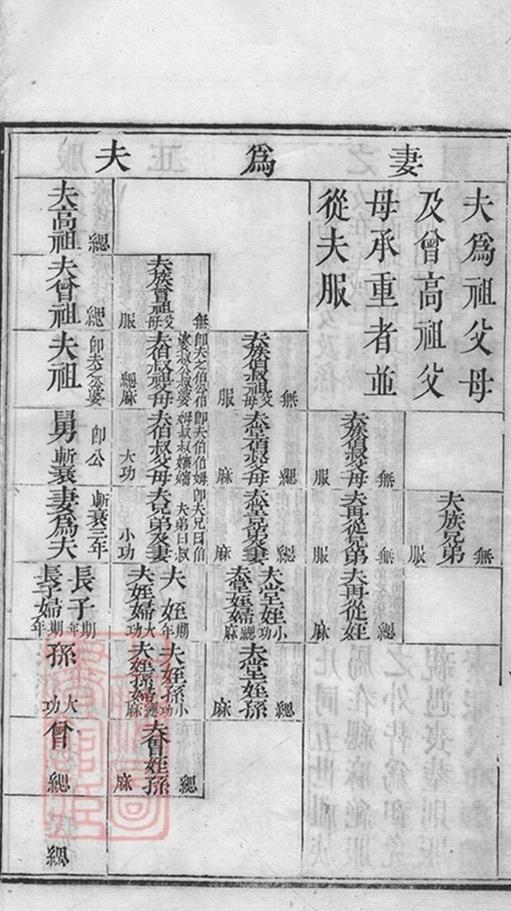 妻為夫
夫為祖父母
及曾高祖父
母承重者並
從夫服
夫族兄弟 無服
夫族伯叔父母 無服
夫再從兄弟 無服
夫再從姪 緦麻
夫族伯叔祖父母 無服
夫堂伯叔父母 緦麻
夫堂兄弟及妻 緦麻
夫堂姪 小功
夫堂姪婦 緦麻
夫堂姪孫 緦麻
夫族曾祖父母 無服
夫伯叔祖父母 緦麻
即夫之伯公伯
婆叔公叔婆
夫伯叔父母 大功
即夫伯伯姆
姆叔叔嬸嬸
夫兄弟及妻 小功
即夫兄曰伯
夫弟曰叔
夫姪 期年
夫姪婦 大功
夫姪孫 小功
夫姪孫婦 緦麻
夫曾姪孫 緦麻
夫高祖 緦
夫曾祖 緦
夫祖
即夫之公婆
舅 即公 斬衰
妻為夫 斬衰三年
長子 期年
長子婦 期年
孫 大功
曾 緦
緦